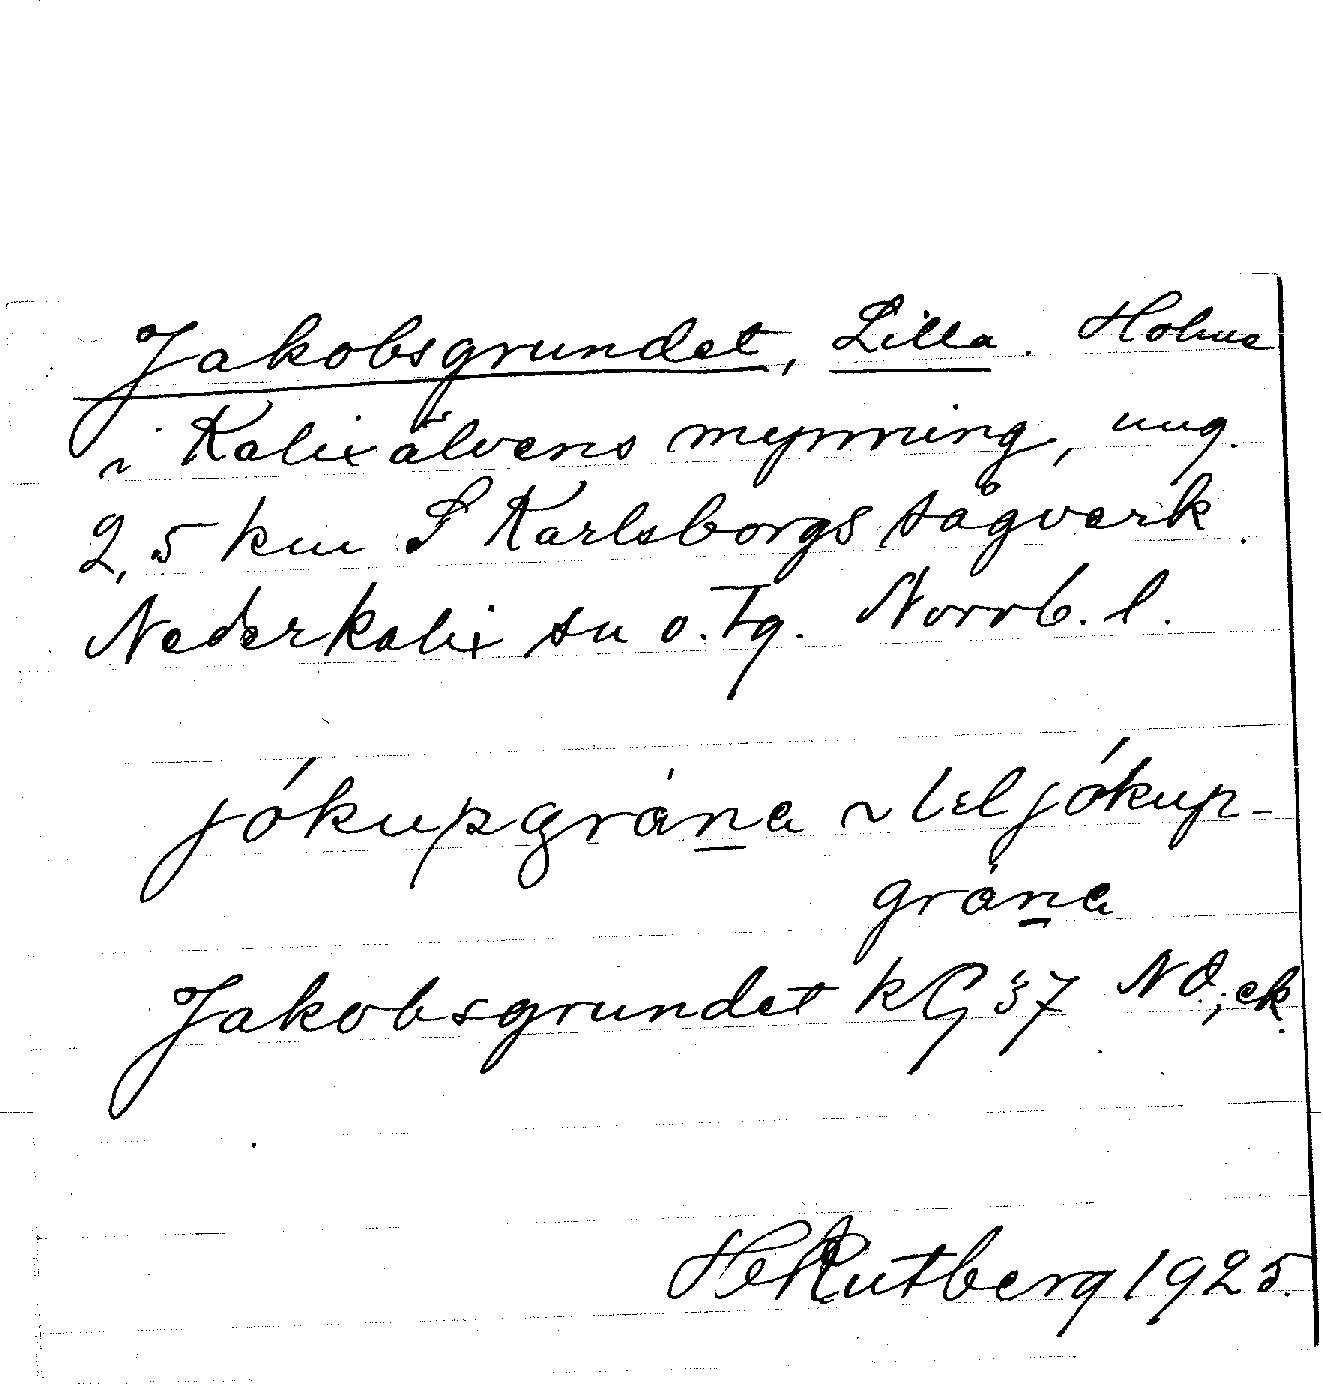 Jakobsgrundet, Lilla. Holme
i Kalixälvens mynning, ung.
2,5 km S Karlsborgs sågverk.
Nederkalix sn o. Tg. Norrb. l.
jókupgràna ~ lɩl jókup-
gràna
Jakobsgrundet kG 37 NO, ek.
HeRutberg 1925.